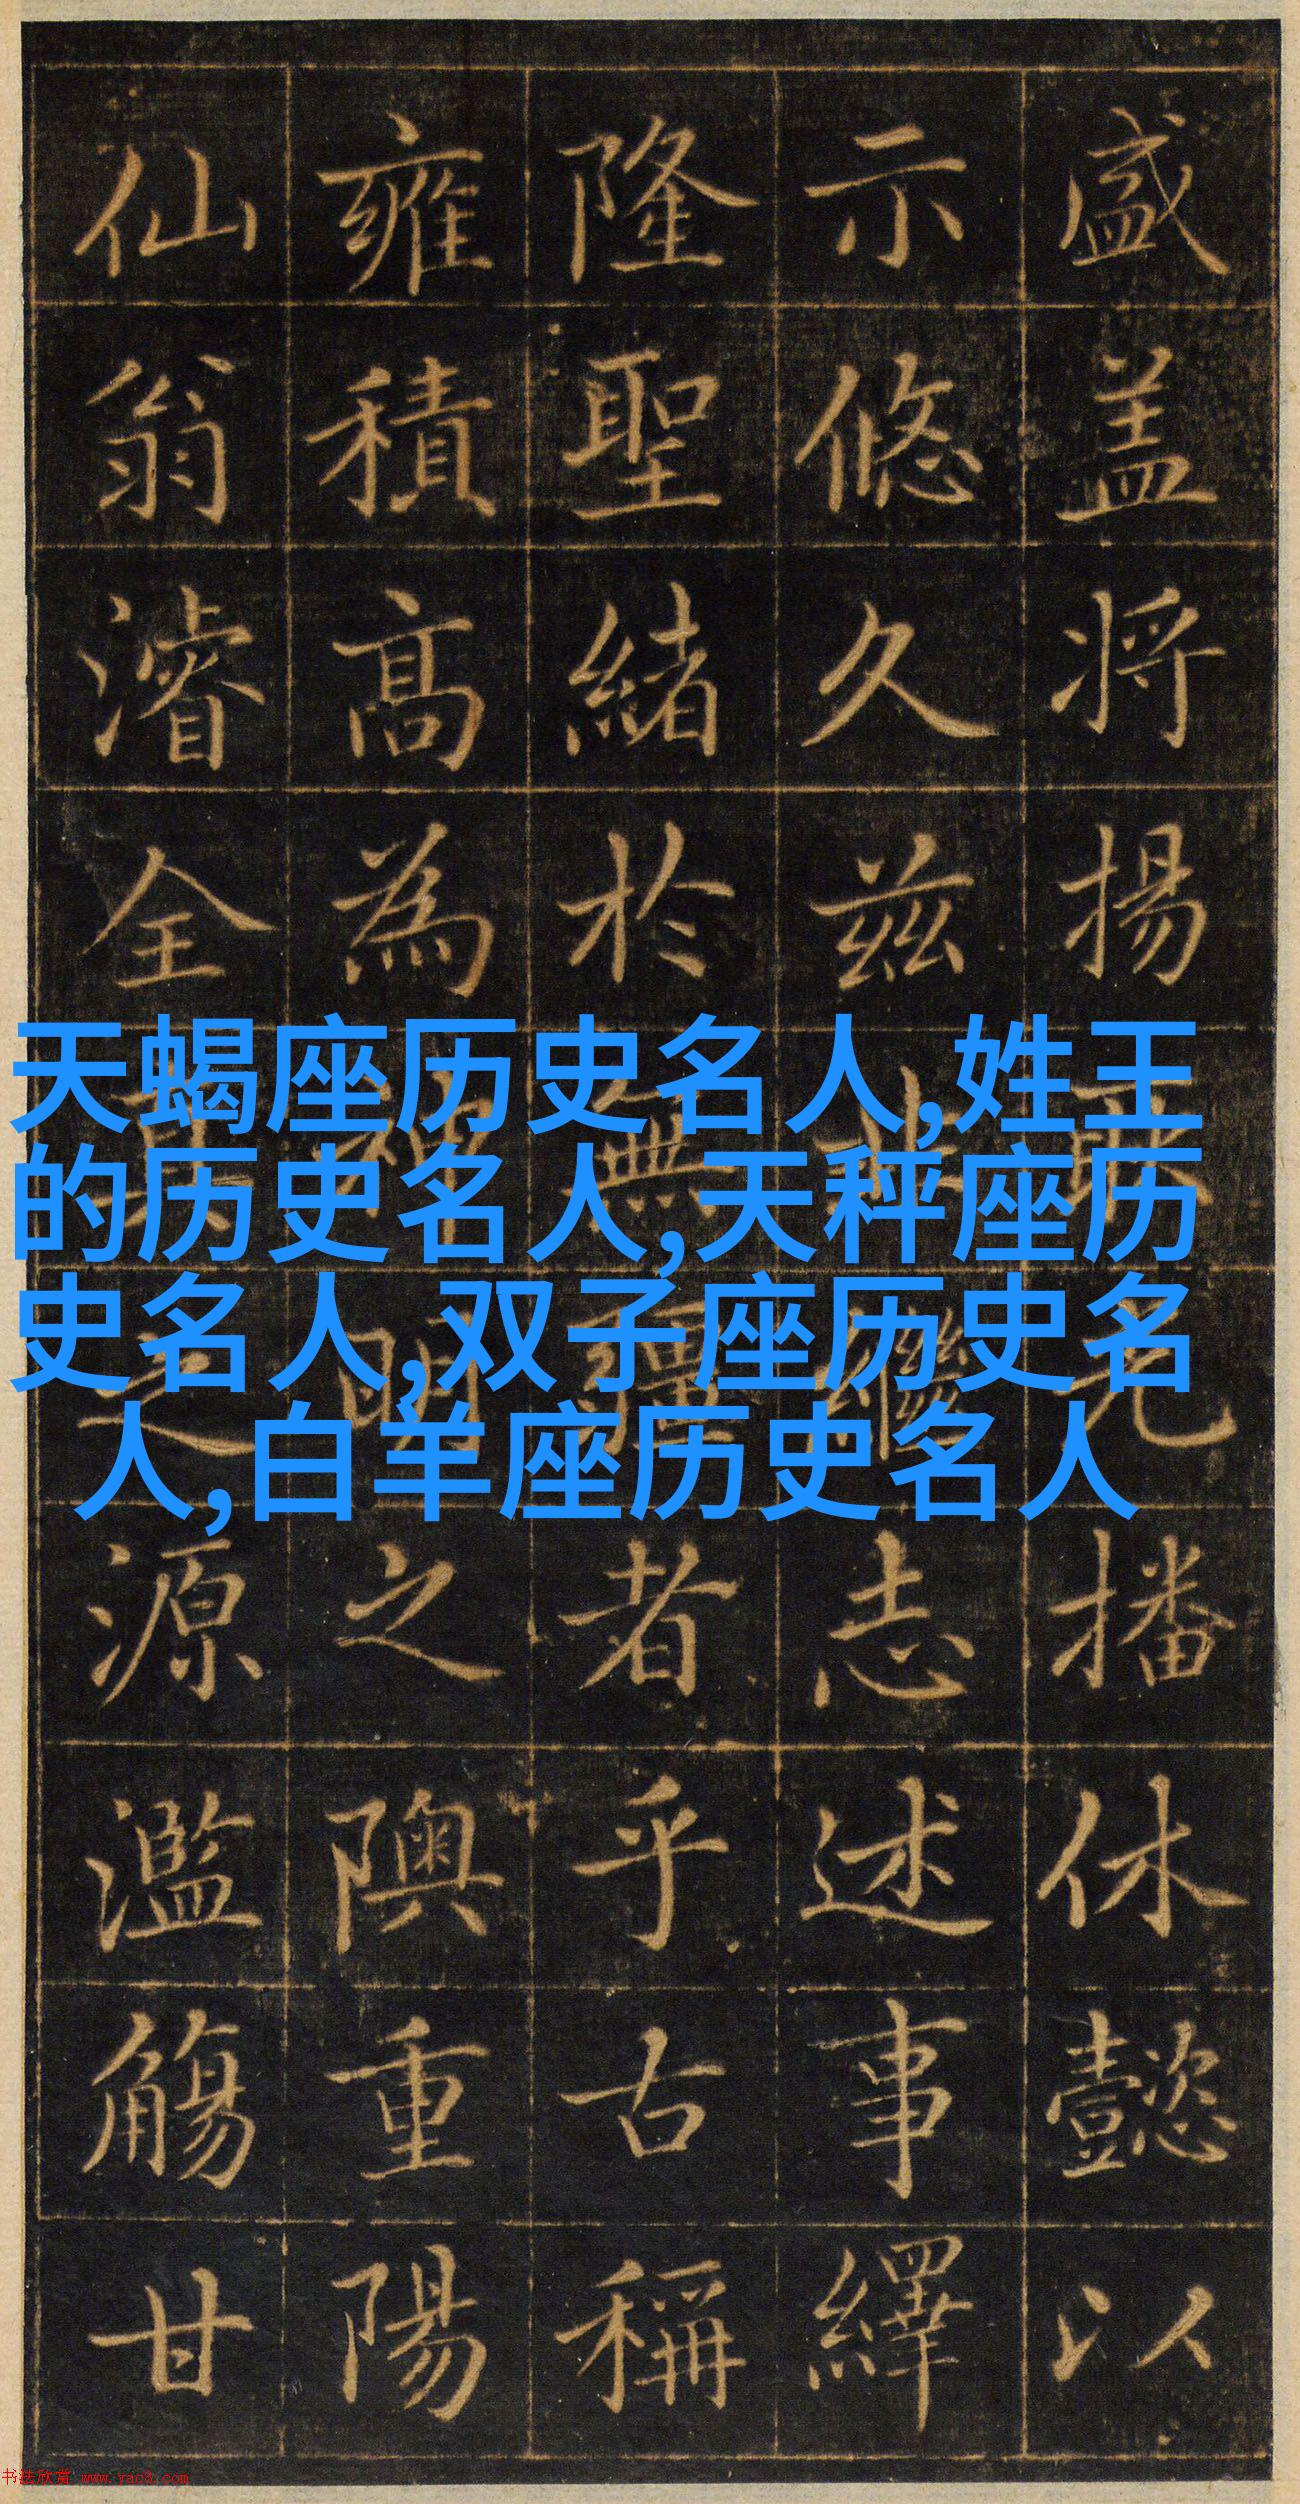 盛盖将揚耿光播休懿以
示悠久兹非繼志述事繹
隆聖緒於無疆者乎古稱
雍積高為神明之隩重陽
仙翁濬全真之源濫觴甘
天蝎座历史名人,姓王
的历史名人,天秤座历
史名人,双子座历史名
人,白羊座历史名人
书法欣赏 www.yac8.com